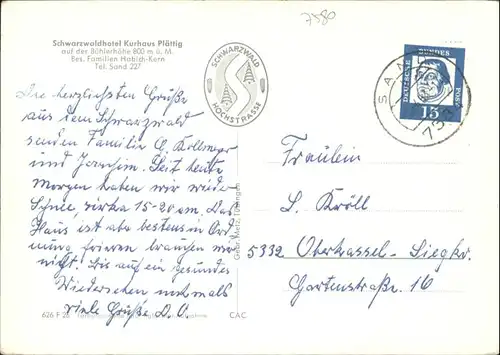 7580
Schwarzwaldhotel Kurhaus Plättig
auf der Bühlerhöhe 800 m ü. M.
Bes. Familien Habich-Kern
Tel. Sand 227
SCHWARZWALD
HOCHSTRASSE
DEUTSCHE BUNDESPOST
15
SAN
Die herzlichsten Grüße
aus dem Schwarzwald
senden Familie O. Kollmeyer
und Joachim. Seit heute
Morgen haben wir wieder
Schnee, zirka 15-20 cm. Das
Haus ist aber bestens in Ord
nung, frieren brauchen wir
nicht! Bis auf ein gesundes
Wiedersehen nochmals
viele Grüße D. O.
Fräulein
L. Kröll
5332 Oberkassel-Siegkr.
Gartenstraße 16
Gebr. Metz, Tübingen
626 F 26
CAC.